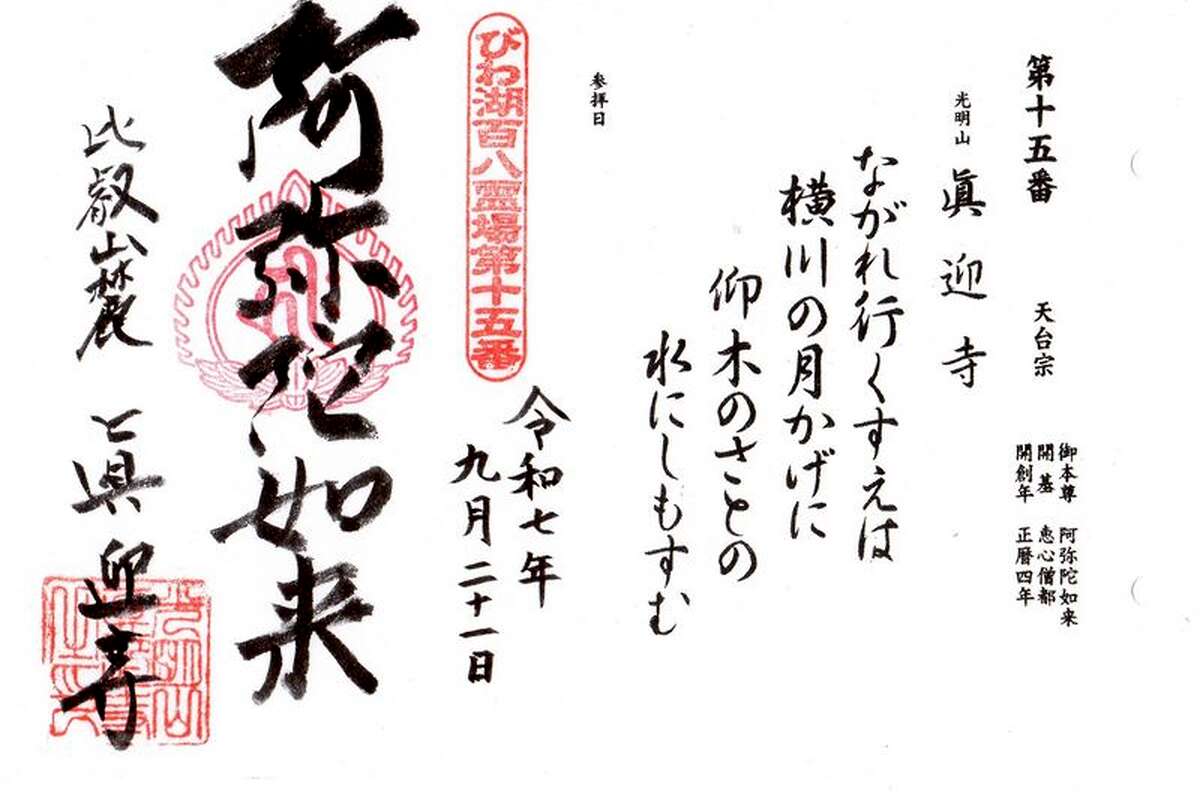 第十五番 天台宗
御本尊 阿弥陀如来
開基 恵心僧都
開創年 正暦四年
光明山 眞迎寺
ながれ行くすえは
横川の月かげに
仰木のさとの
水にしもすむ
参拝日
令和七年
九月二十一日
びわ湖百八霊場第十五番
阿弥陀如来
比叡山麓 眞迎寺